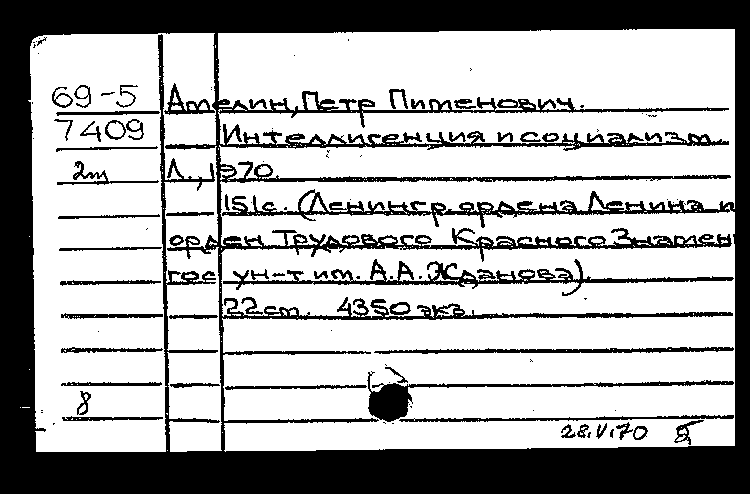 69-5 Амелин, Петр Пименович.
7409 Интеллигенция и социализм.
2т Л., 1970.
151с. (Ленингр. ордена Ленина и
орден Трудового Красного Знамен
гос ун-т им. А.А. Жданова).
22см. 4350 экз.
8
28.V.70